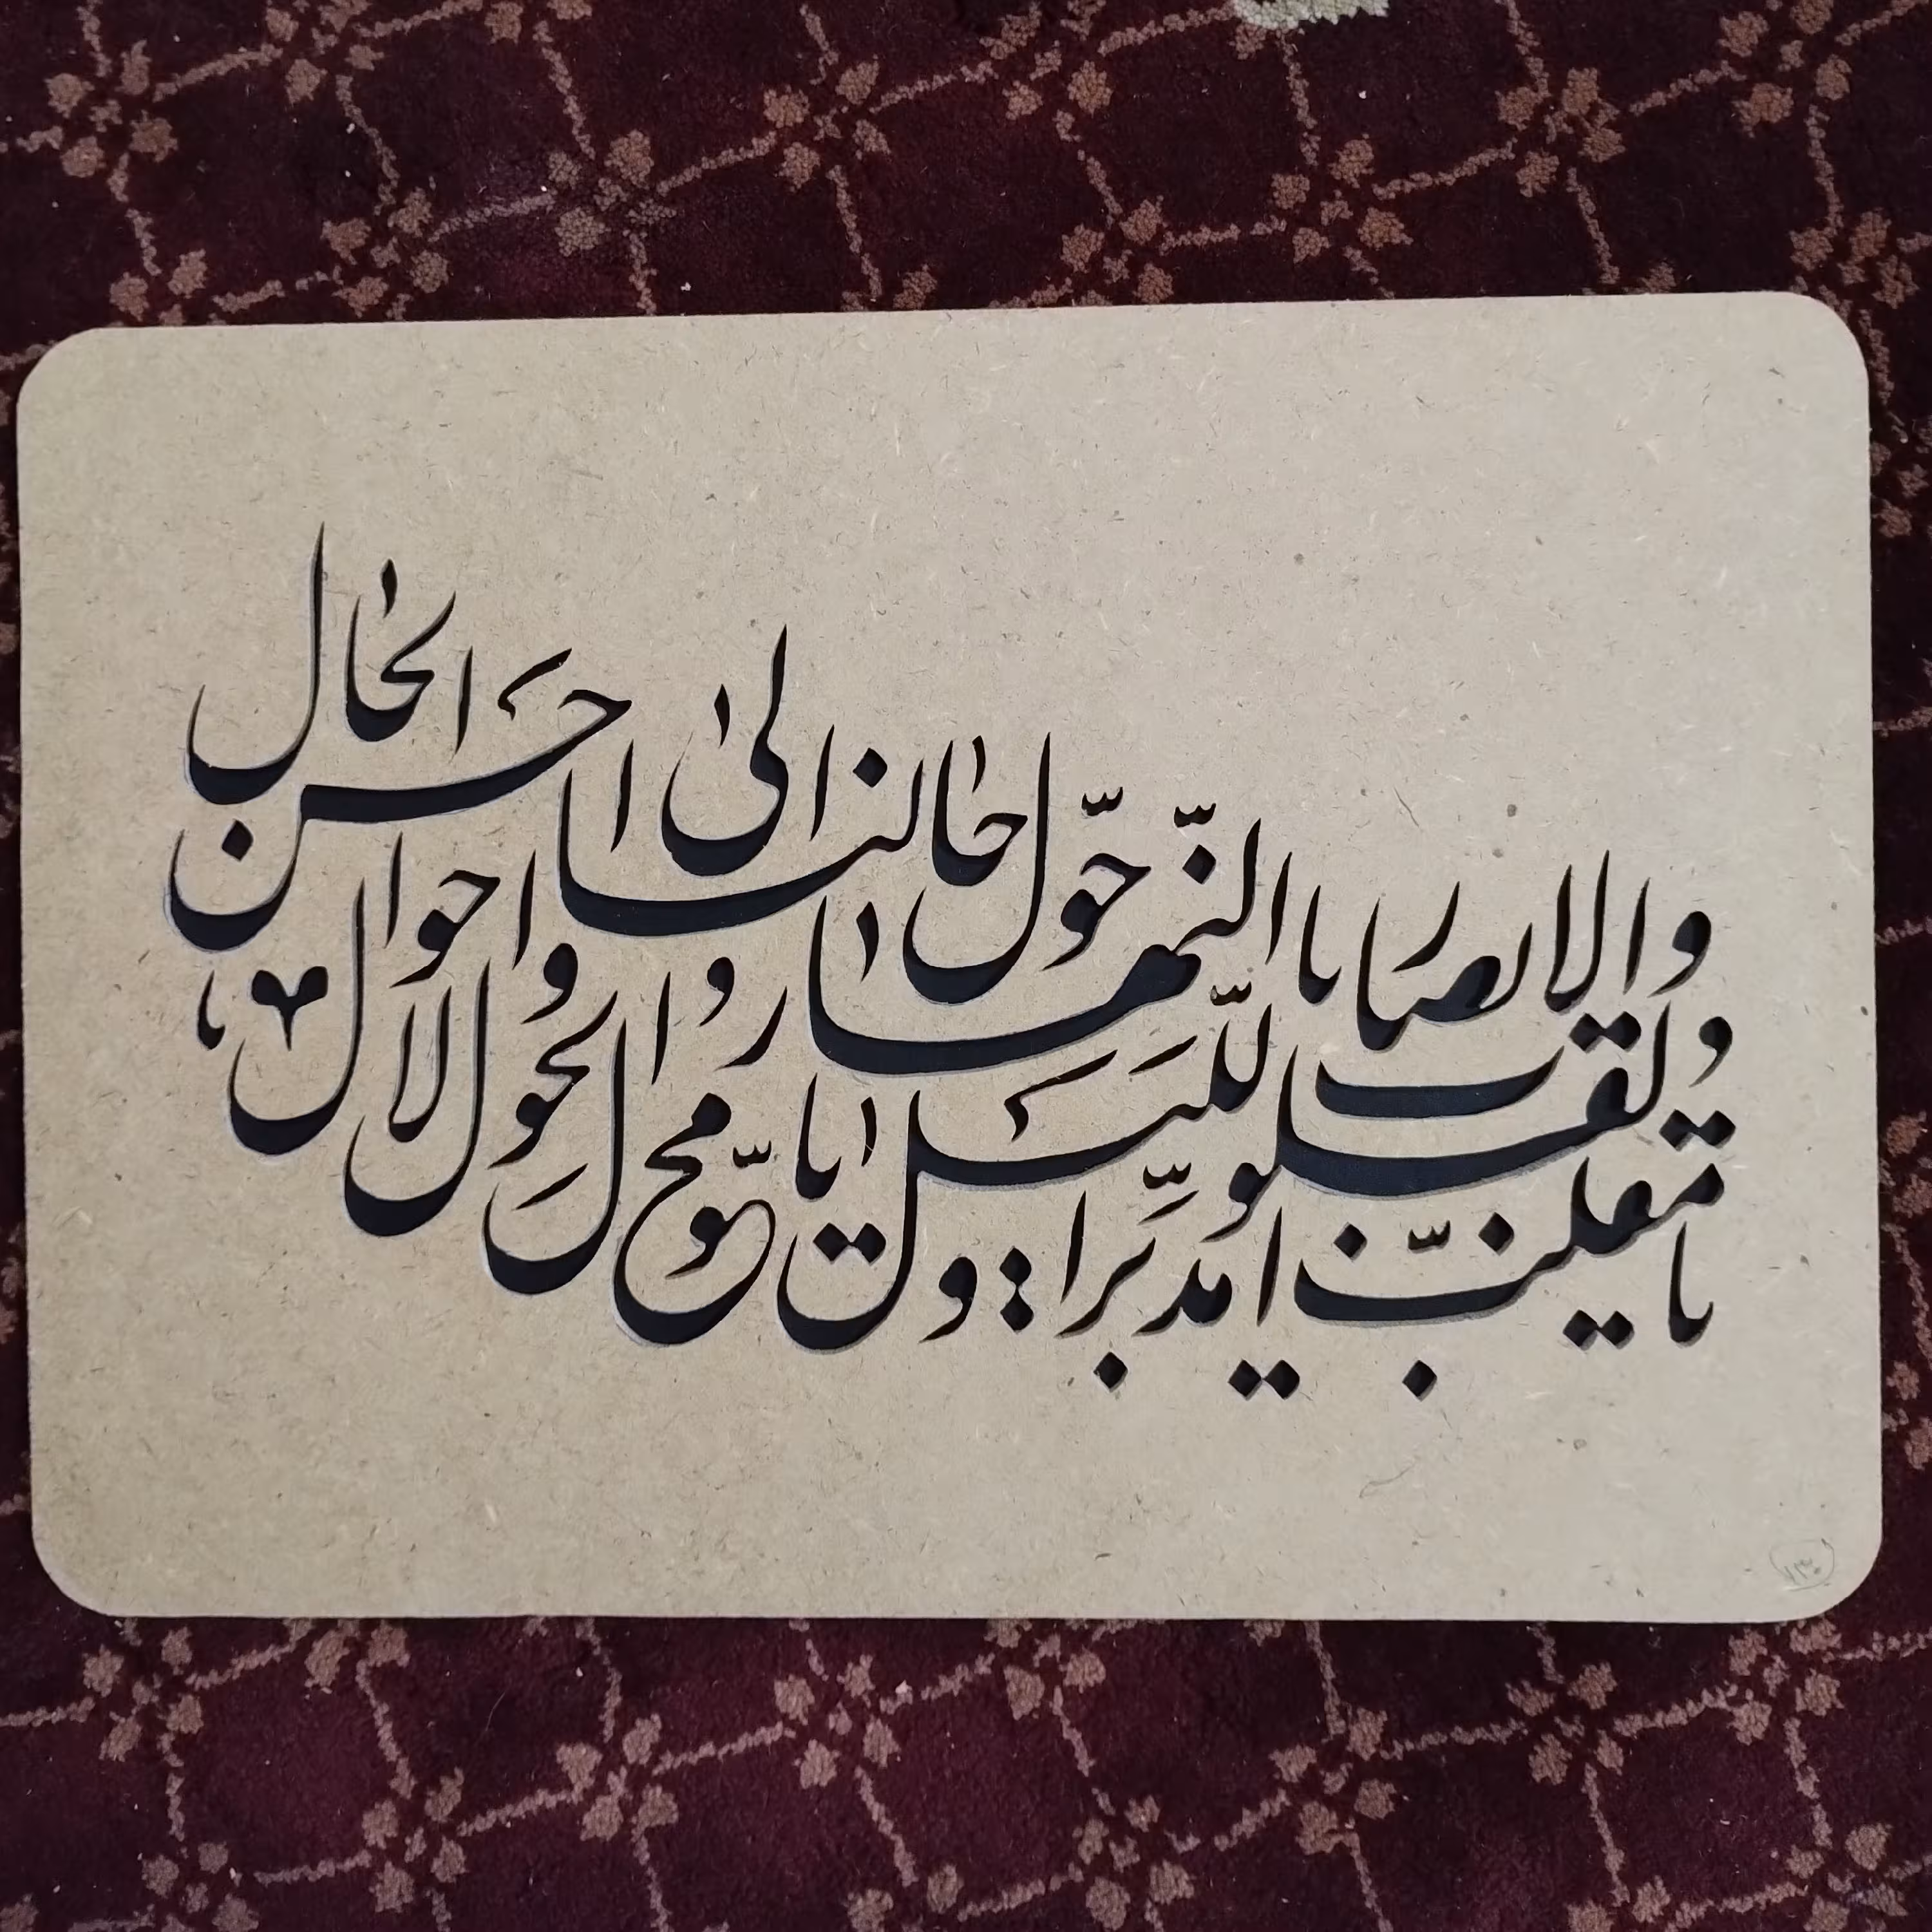 یا مقلب القلوب و الابصار
یا مدبر اللیل و النهار
یا محول الحول و الاحوال
حول حالنا الی احسن الحال